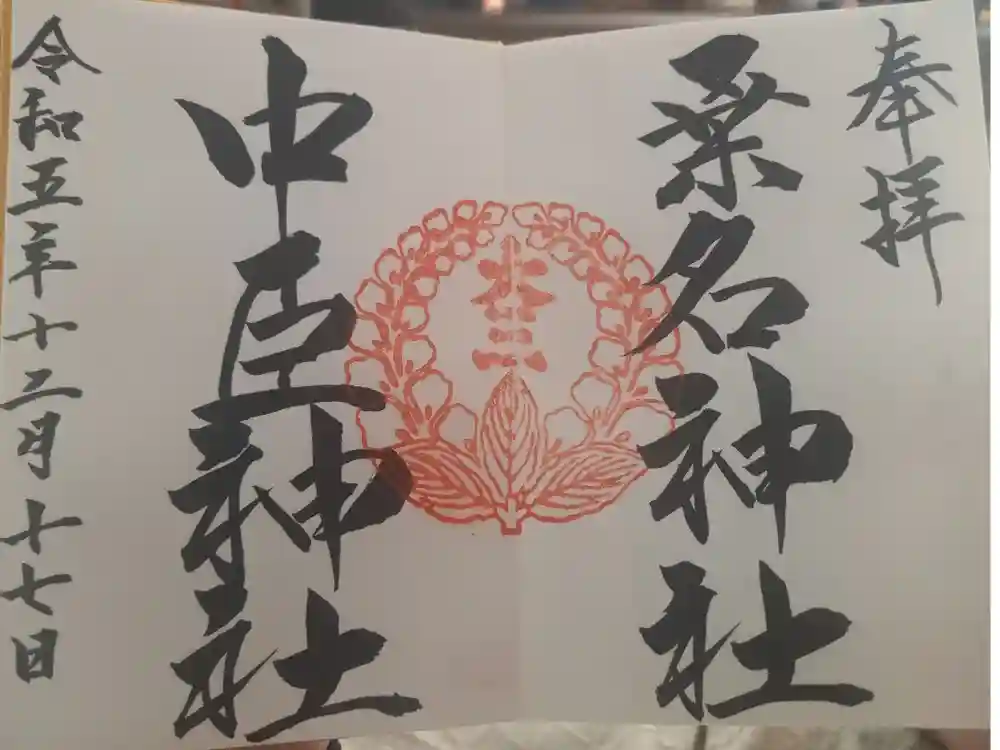 奉拝
桑名神社
大一三
中臣神社
令和五年十二月十七日